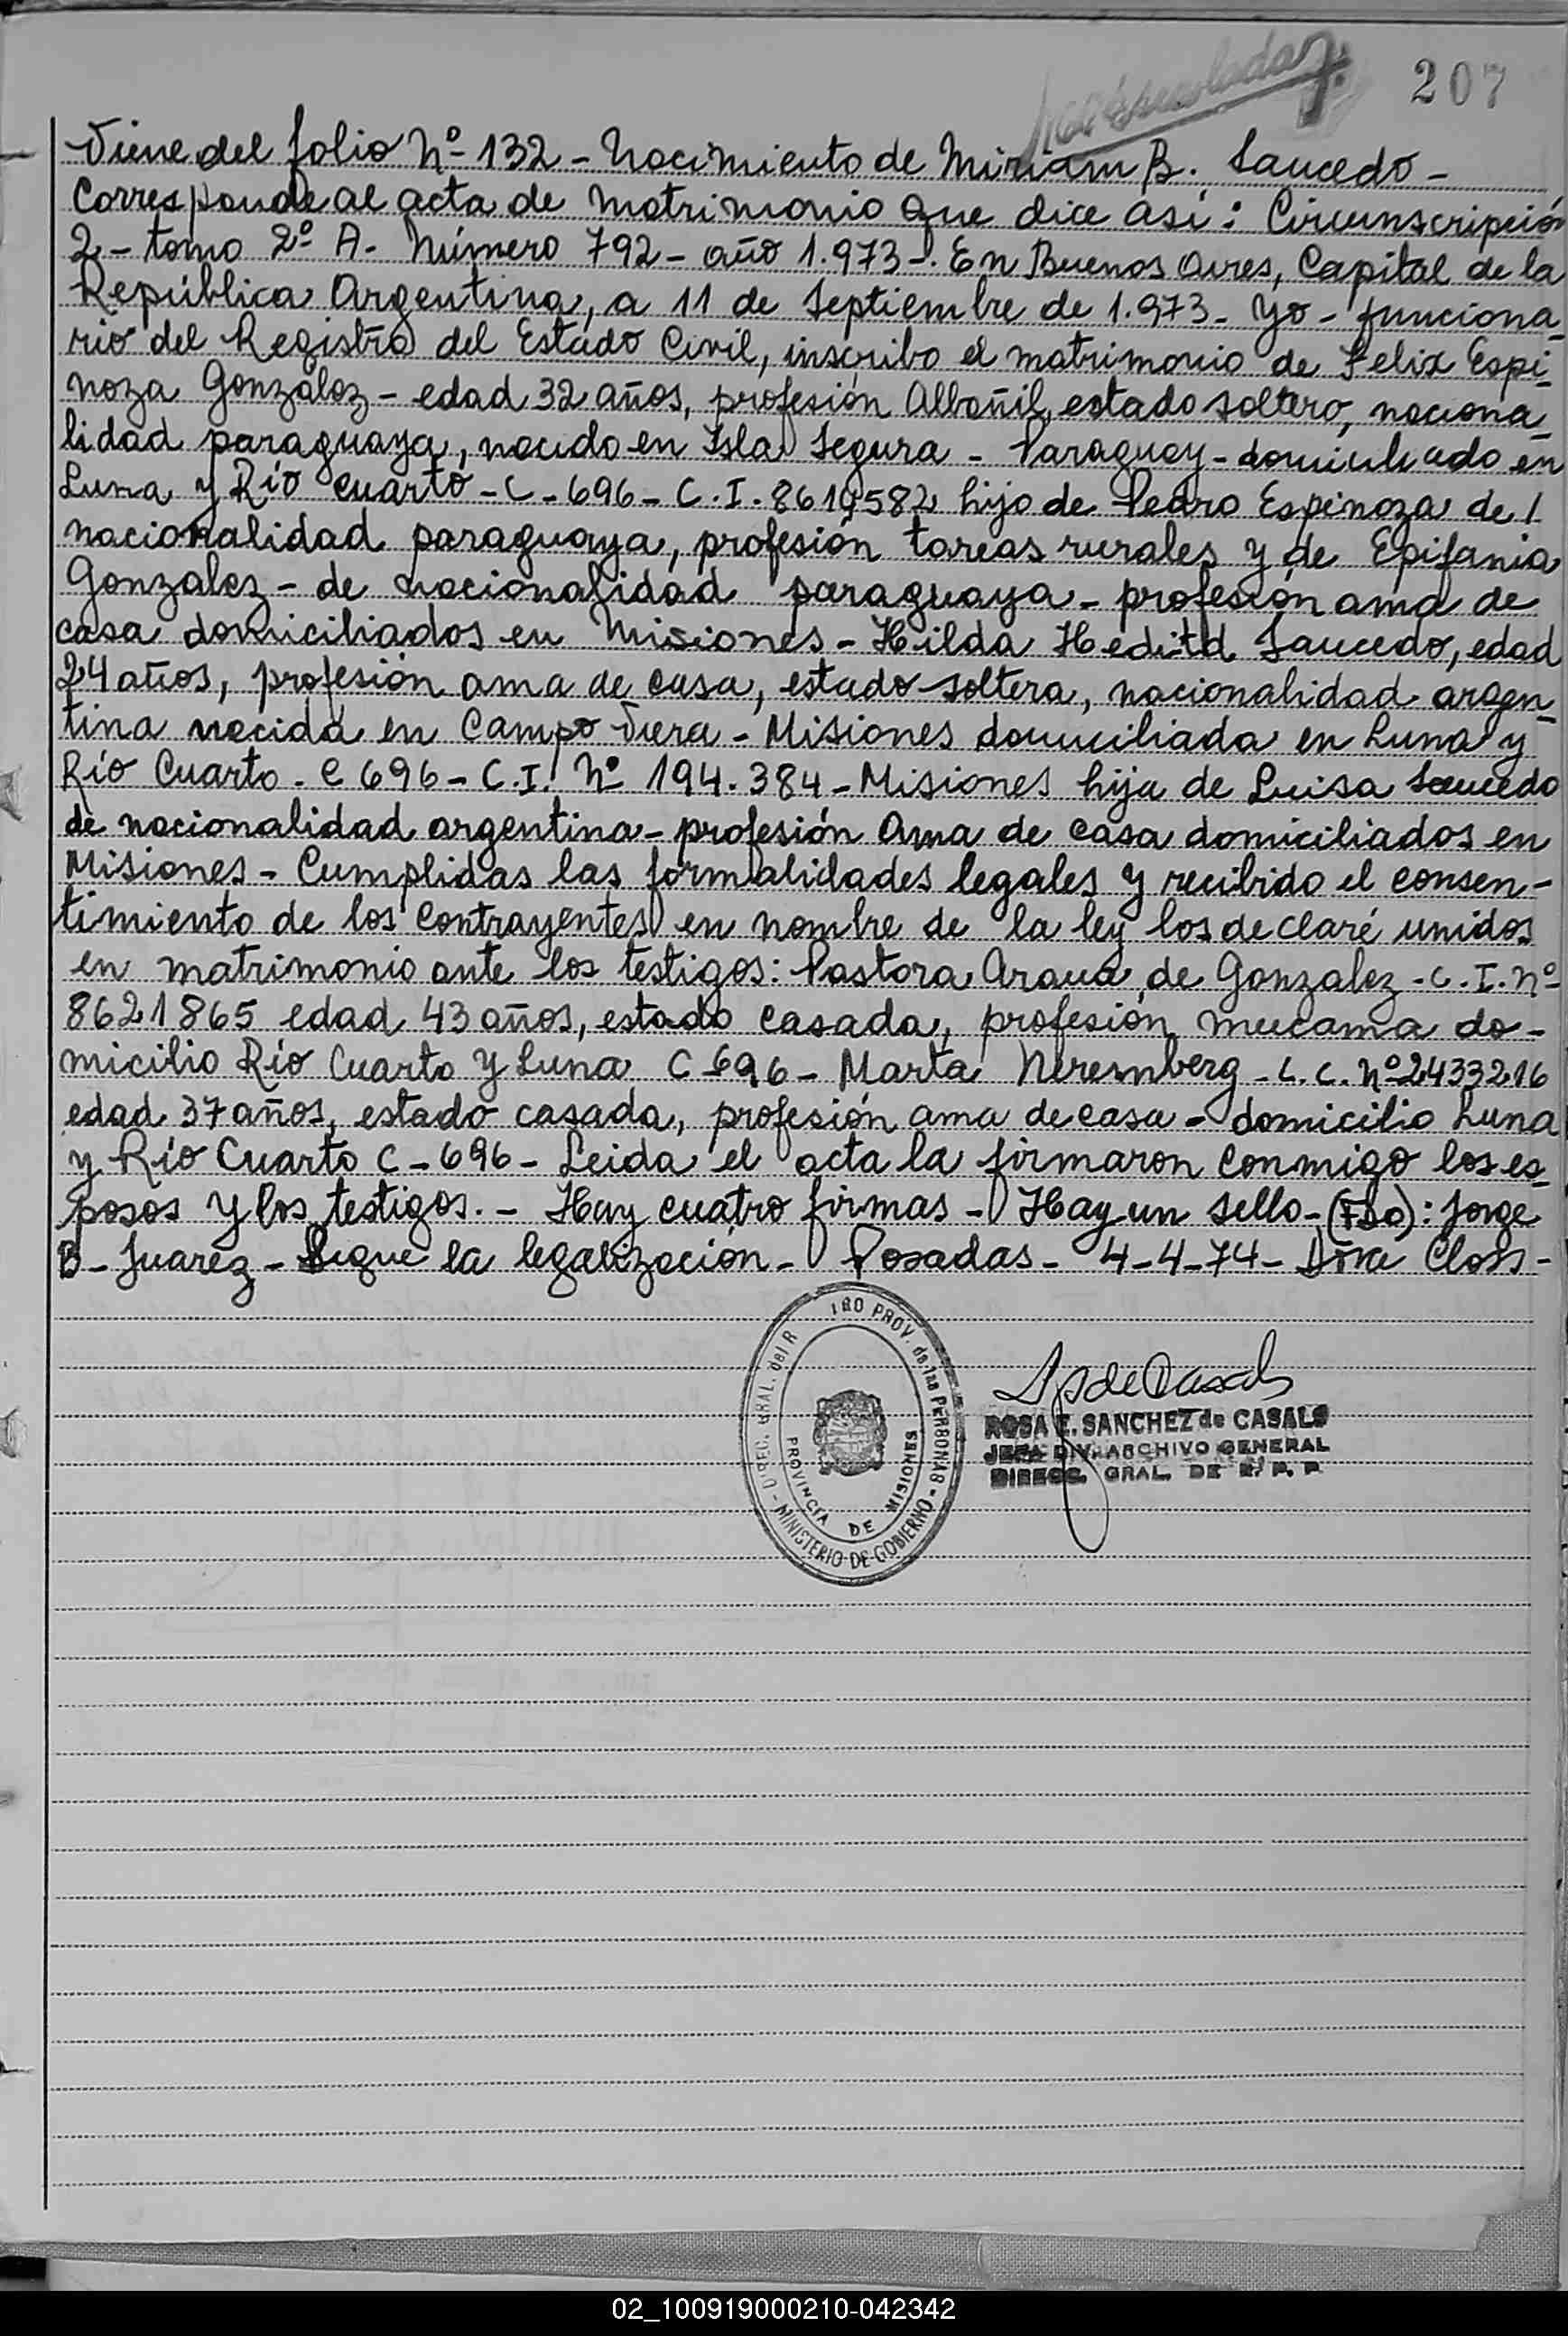 207
Viene del folio Nº 132 - Nacimiento de Miriam B. Saucedo -
Corresponde al acta de matrimonio que dice así: Circunscripción
2 - tomo 2º A - Número 792 - año 1.973 -. En Buenos Aires, Capital de la
República Argentina, a 11 de Septiembre de 1.973 - Yo - funciona-
rio del Registro del Estado Civil, inscribo el matrimonio de Felix Espi-
noza Gonzáloz - edad 32 años, profesión Albañil, estado soltero, naciona-
lidad paraguaya, nacido en Isla Segura - Paraguay - domiciliado en
Luna y Río Cuarto - C - 696 - C.I. 8619582 hijo de Pedro Espinoza de /
nacionalidad paraguaya, profesión tareas rurales y de Epifania
Gonzalez - de nacionalidad paraguaya - profesión ama de
casa domiciliados en Misiones - Hilda Heditd Saucedo, edad
24 años, profesión ama de casa, estado soltera, nacionalidad argen-
tina nacida en Campo Viera - Misiones domiciliada en Luna y
Río Cuarto - C 696 - C.I. Nº 194.384 - Misiones hija de Luisa Saucedo
de nacionalidad argentina - profesión Ama de casa domiciliados en
Misiones - Cumplidas las formalidades legales y recibido el consen-
timiento de los contrayentes en nombre de la ley los declaré unidos
en matrimonio ante los testigos: Pastora de Gonzalez - C.I. Nº
8621865 edad 43 años, estado casada, profesión mucama do-
micilio Río Cuarto y Luna C 696 - Marta Neremberg - L.C. Nº 2433216
edad 37 años, estado casada, profesión ama de casa - domicilio Luna
y Río Cuarto C - 696 - Leida el acta la firmaron conmigo los es-
posos y los testigos. - Hay cuatro firmas - Hay un sello - (Fdo): Jorge
B - Juarez - Sigue la legalización - Posadas - 4-4-74 - Closs -
DIREC. GRAL. del R TRO PROV. de las PERSONAS - MINISTERIO DE GOBIERNO -
PROVINCIA DE MISIONES
ROSA E. SANCHEZ de CASALS
JEFA DIV. ARCHIVO GENERAL
DIRECC. GRAL. DE R. P. P.
02_100919000210-042342